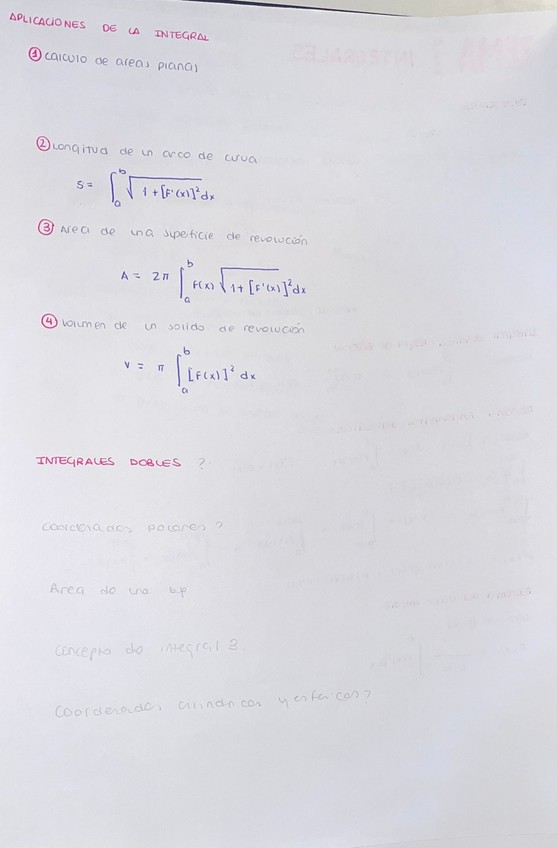 APLICACIONES DE LA INTEGRAL
① Calculo de areas planas
② Longitud de un arco de curva
S = ∫ₐᵇ √(1 + [F'(x)]²) dx
③ Area de una superficie de revolución
A = 2π ∫ₐᵇ F(x) √(1 + [F'(x)]²) dx
④ Volumen de un solido de revolución
V = π ∫ₐᵇ [F(x)]² dx
INTEGRALES DOBLES ?
Coordenadas polares?
Area de una
Concepto de integral 2.
Coordenadas cilindricas y esfericas?